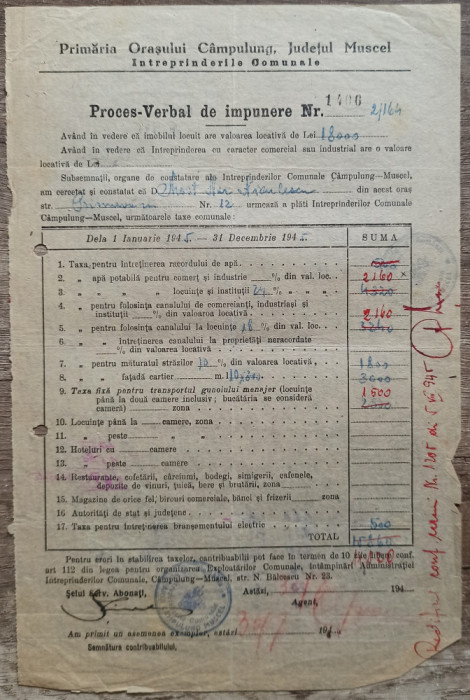 Primăria Orașului Câmpulung, Județul Muscel
Intreprinderile Comunale
Proces-Verbal de impunere Nr. 1406 2/164
Având în vedere că imobilul locuit are valoarea locativă de Lei 18000
Având în vedere că Intreprinderea cu caracter comercial sau industrial are o valoare
locativă de Lei
Subsemnații, organe de constatare ale Intreprinderilor Comunale Câmpulung-Muscel,
am cercetat și constatat că D. din acest oraș
str. Nr. 12 urmează a plăti Intreprinderilor Comunale
Câmpulung-Muscel, următoarele taxe comunale :
Dela 1 Ianuarie 1945 — 31 Decemvrie 1945 SUMA
1. Taxa pentru întreținerea racordului de apă
2. „ apă potabilă pentru comerț și industrie % din val. loc. 2160 x
3. „ „ „ „ locuințe și instituții 24 % „ „ „ 4320
4. „ pentru folosința canalului de comercianți, industriași și
instituții % din valoarea locativă 2160
5. „ pentru folosința canalului la locuințe 18 % din val. loc. 3240
6. „ „ întreținerea canalului la proprietăți neracordate
% din valoarea locativă
7. „ pentru măturatul străzilor 10 % din valoarea locativă, 1800
8. „ fațadă cartier m. l. 3000
9. Taxa fixă pentru transportul gunoiului menajer (locuințe 1500
până la două camere inclusiv ; bucătăria se consideră
cameră) zona
10. Locuințe până la camere, zona
11. „ peste „ „
12. Hoteluri cu camere
13. „ peste camere
14. Restaurante, cofetării, cârciumi, bodegi, simigerii, cafenele,
depozite de vinuri, țuică, bere și brutării, zona
15. Magazine de orice fel, birouri comerciale, bănci și frizerii zona
16. Autorități de stat și județene
17. Taxa pentru întreținerea branșamentului electric 500
TOTAL
Pentru erori în stabilirea taxelor, contribuabilii pot face în termen de 10 zile libere conf.
art 112 din legea pentru organizarea Exploatărilor Comunale, întâmpinări Administrației
Intreprinderilor Comunale, Câmpulung-Muscel, str. N. Bălcescu Nr. 23.
Șeful Serv. Abonați, Astăzi 194
Agent,
Am primit un asemenea exemplar, astăzi 194
Semnătura contribuabilului,
Nr. 1205 din 5 VI 945